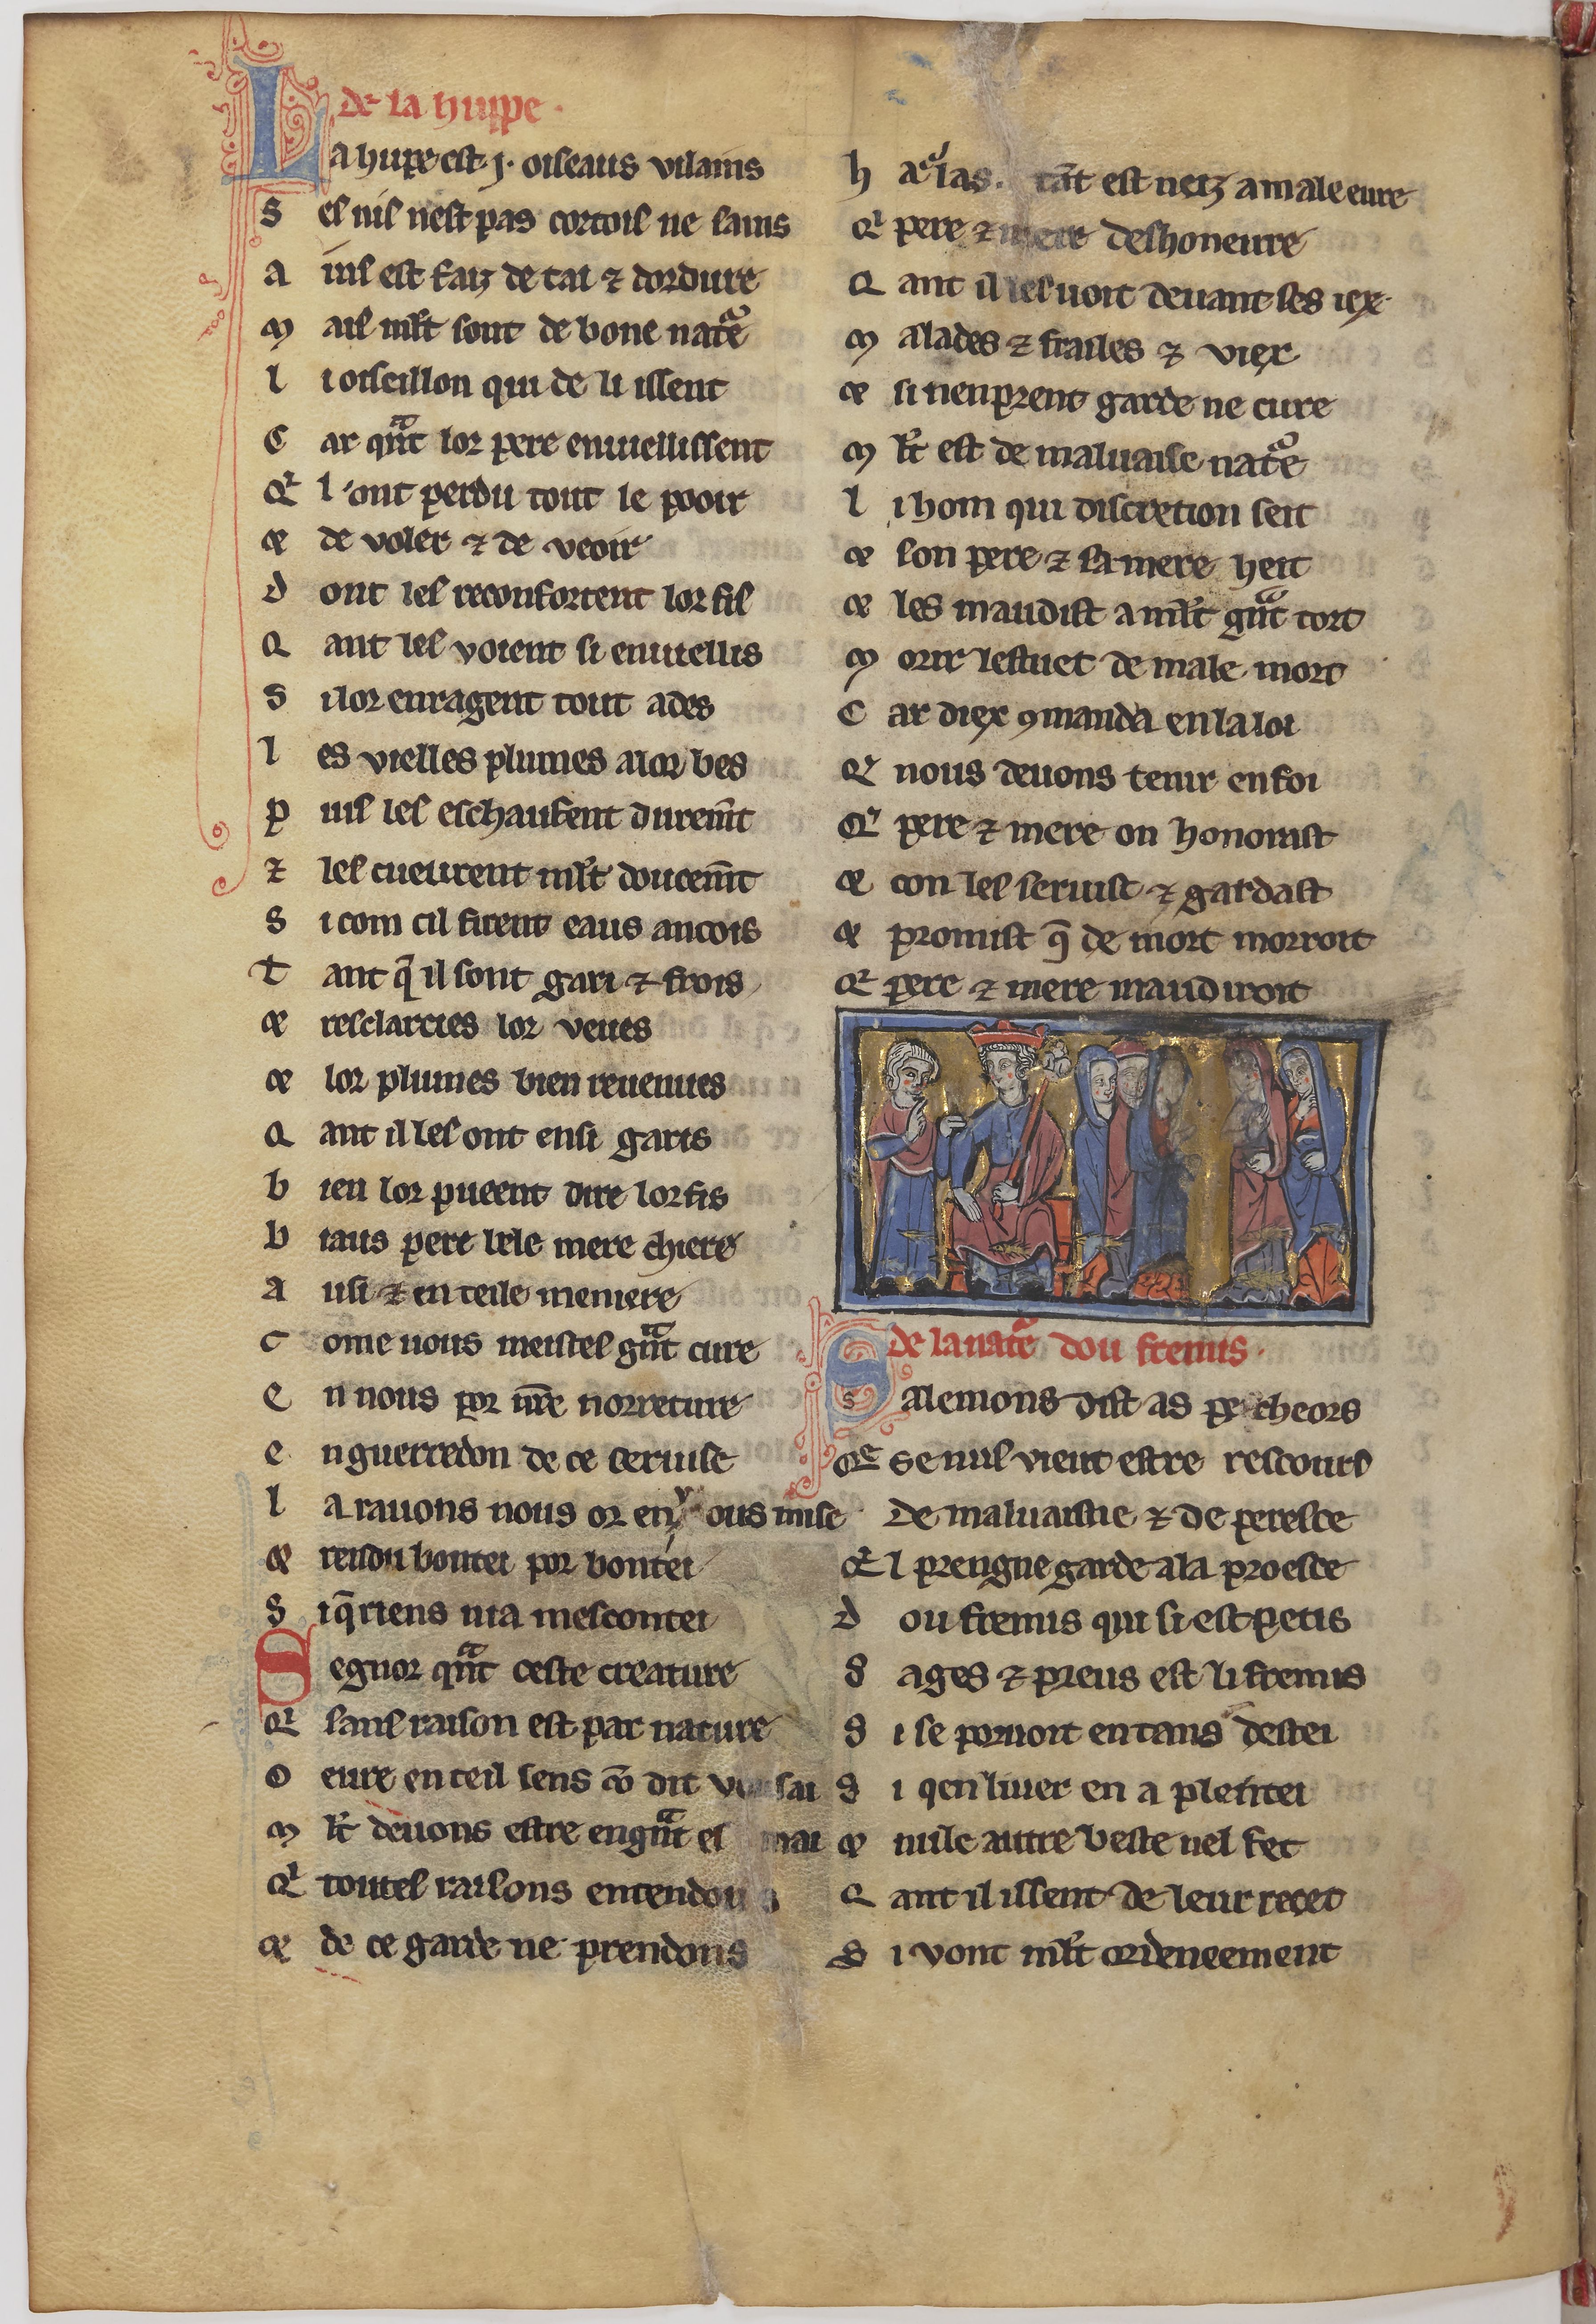 de la huppe ·
La hupe est ·j· oiseaus vilains
s el nil nest pas cortoil ne sains
a inl est faiz de tai ⁊ dordure
m ais mlt sont de bone nate
l i oiseillon qui de li issent
C ar qnt lor pere enviellissent
Q l ont perdu tout le pooir
⁊ de voler ⁊ de veoir
d ont les reconfortent lor fil
Q ant les voient si enviellis
S i lor enragent tout ades
l es vielles plumes a lor bes
p uis les eschaufent durement
⁊ les cueurent mlt doucement
S i com cil firent eaus ancois
t ant q il sont gari ⁊ frois
⁊ resclarcies lor veues
⁊ lor plumes bien revenues
Q ant il les ont ensi garis
b ien lor pueent dire lor fis
b iaus pere bele mere chiere
a usi ⁊ en teile meniere
c ome vous meistes gnt cure
e n nous por nre norreture
e n guerredon de ce servise
l a ravons nous or en vous mise
⁊ rendu bontei por bontei
S i q riens nia mescontei
S egnor qnt ceste creature
Q sans raison est par nature
o eure en teil sens co dit vos ai
m lt devons estre en gnt esmai
Q toutes raisons entendons
⁊ de ce garde ne prendons
h a las. tant est netz a male eure
Q pere ⁊ mere deshoneure
Q ant il les voit devant ses iex
m alades ⁊ frailes ⁊ viex
⁊ si nen prent garde ne cure
m lt est de malvaise nate
l i hom qui discretion seit
⁊ son pere ⁊ sa mere heit
⁊ les maudist a mlt gnt tort
m orir lestuet de male mort
C ar diex 9manda en la loi
Q nous devons tenir en foi
Q pere ⁊ mere on honorast
⁊ con les servist ⁊ gardast
⁊ promist q de mort morroit
Q pere ⁊ mere maudiroit
de la nate dou fremis ·
S alemons dist as pecheors
Qe se nus vient estre rescours
De malvaistie ⁊ de peresce
Qil prengne garde a la proesce
d ou fremis qui si est petis
S ages ⁊ preus est li fremis
S i se porvoit en tans destei
S i qen iver en a plentei
⁊ nule autre beste nel fet
Q ant il issent de leur recet
S i vont mlt ordeneement